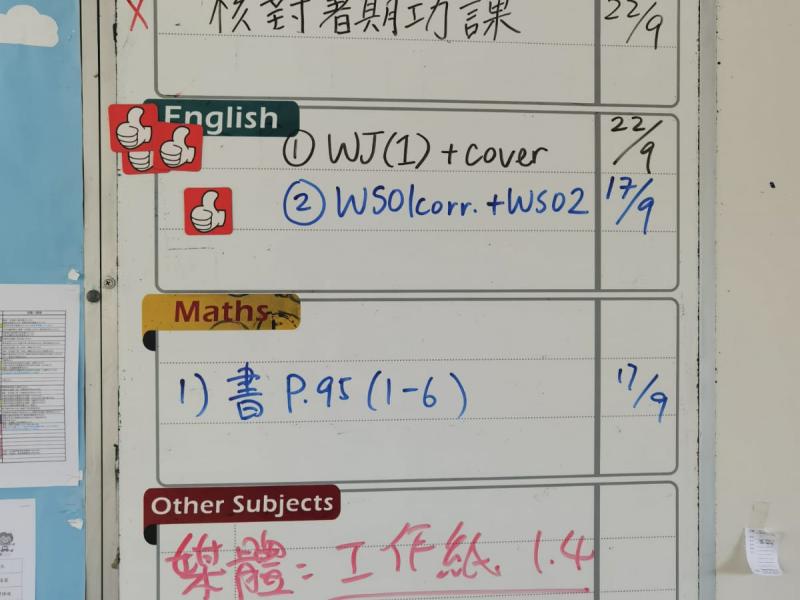 X 核對暑期功課 22/9
English
① WJ(1) + cover 22/9
② WS01corr. + WS02 17/9
Maths
1) 書 P.95 (1-6) 17/9
Other Subjects
媒體: 工作紙 1.4